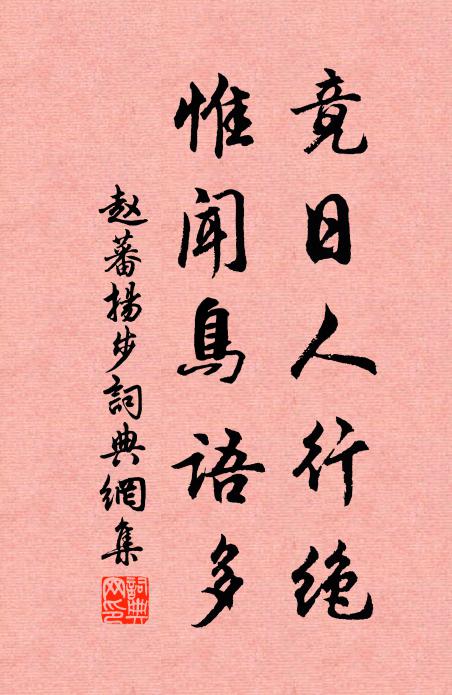 竟日人行绝
惟闻鳥语多
赵蕃揚步詞典網集
詞典網印